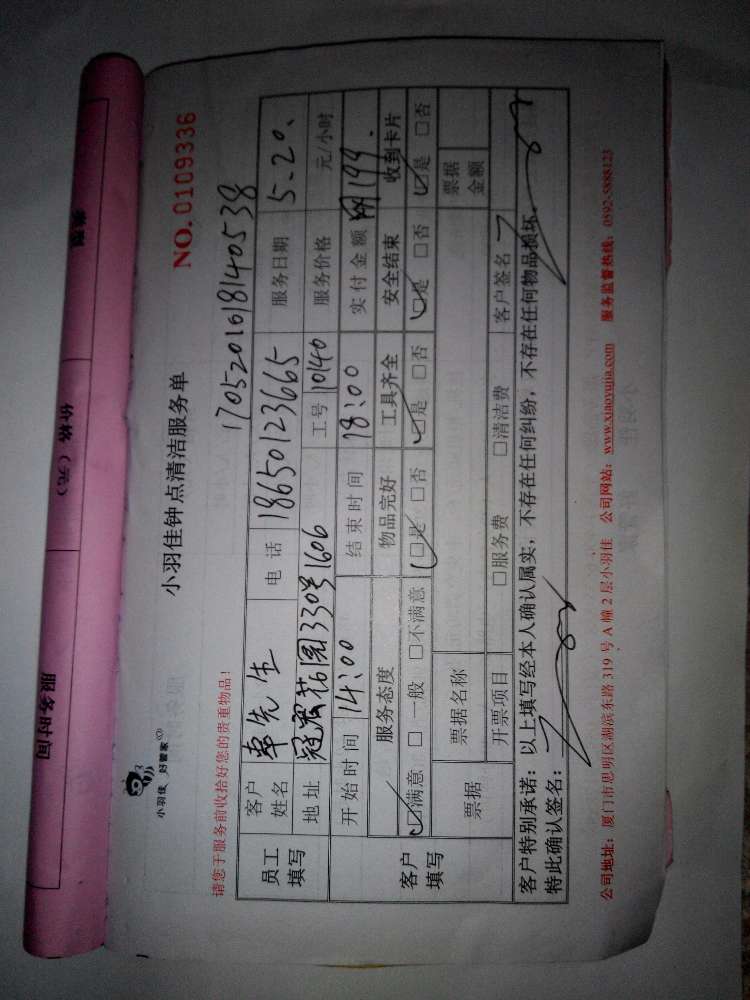 小羽佳 好管家
小羽佳钟点清洁服务单
NO. 0109336
请您于服务前收拾好您的贵重物品！
17052016181 40538
员工填写 客户姓名 先生 电话 18650123665 服务日期 5.20.
地址 花园330号1606 工号 10140 服务价格 元/小时
客户填写 开始时间 14:00 结束时间 18:00 实付金额 199.
服务态度 物品完好 工具齐全 安全结束 收到卡片
☑满意 □一般 □不满意 ☑是 □否 ☑是 □否 ☑是 □否 ☑是 □否
票据 票据名称 票据金额
开票项目 □服务费 □清洁费 客户签名
客户特别承诺：以上填写经本人确认属实，不存在任何纠纷，不存在任何物品损坏。
特此确认签名：
公司地址：厦门市思明区湖滨东路 319 号 A 幢 2 层小羽佳 公司网站：www.xiaoyujia.com 服务监督热线：0592-5888123
服务时间
价格（元）